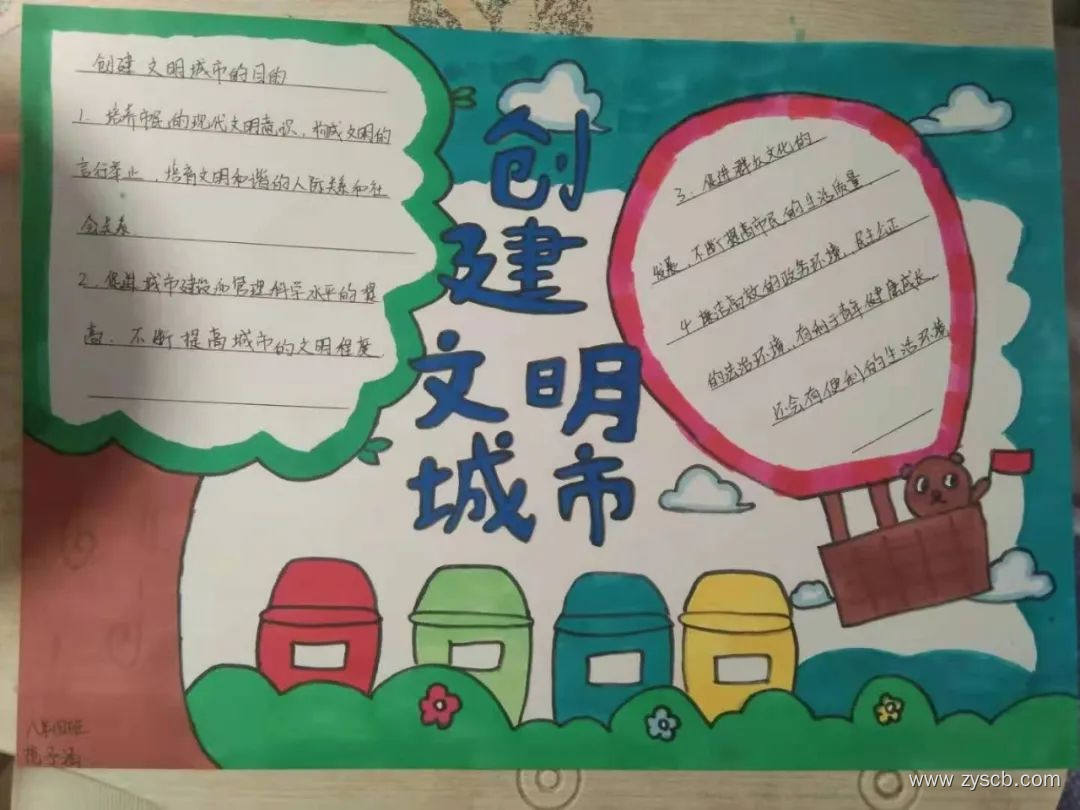 创建文明城市的目的
1. 培养市民的现代文明意识，构成文明的
言行举止，培育文明和谐的人际关系和社
会关系
2. 促进城市建设和管理科学水平的提
高，不断提高城市的文明程度
创
建
文明
城市
3. 促进群众文化的
发展，不断提高市民的生活质量.
4. 廉洁高效的政务环境，民主公正
的法治环境，有利于青年健康成长.
还会有便利的生活环境
八年四班
www.zyscb.com